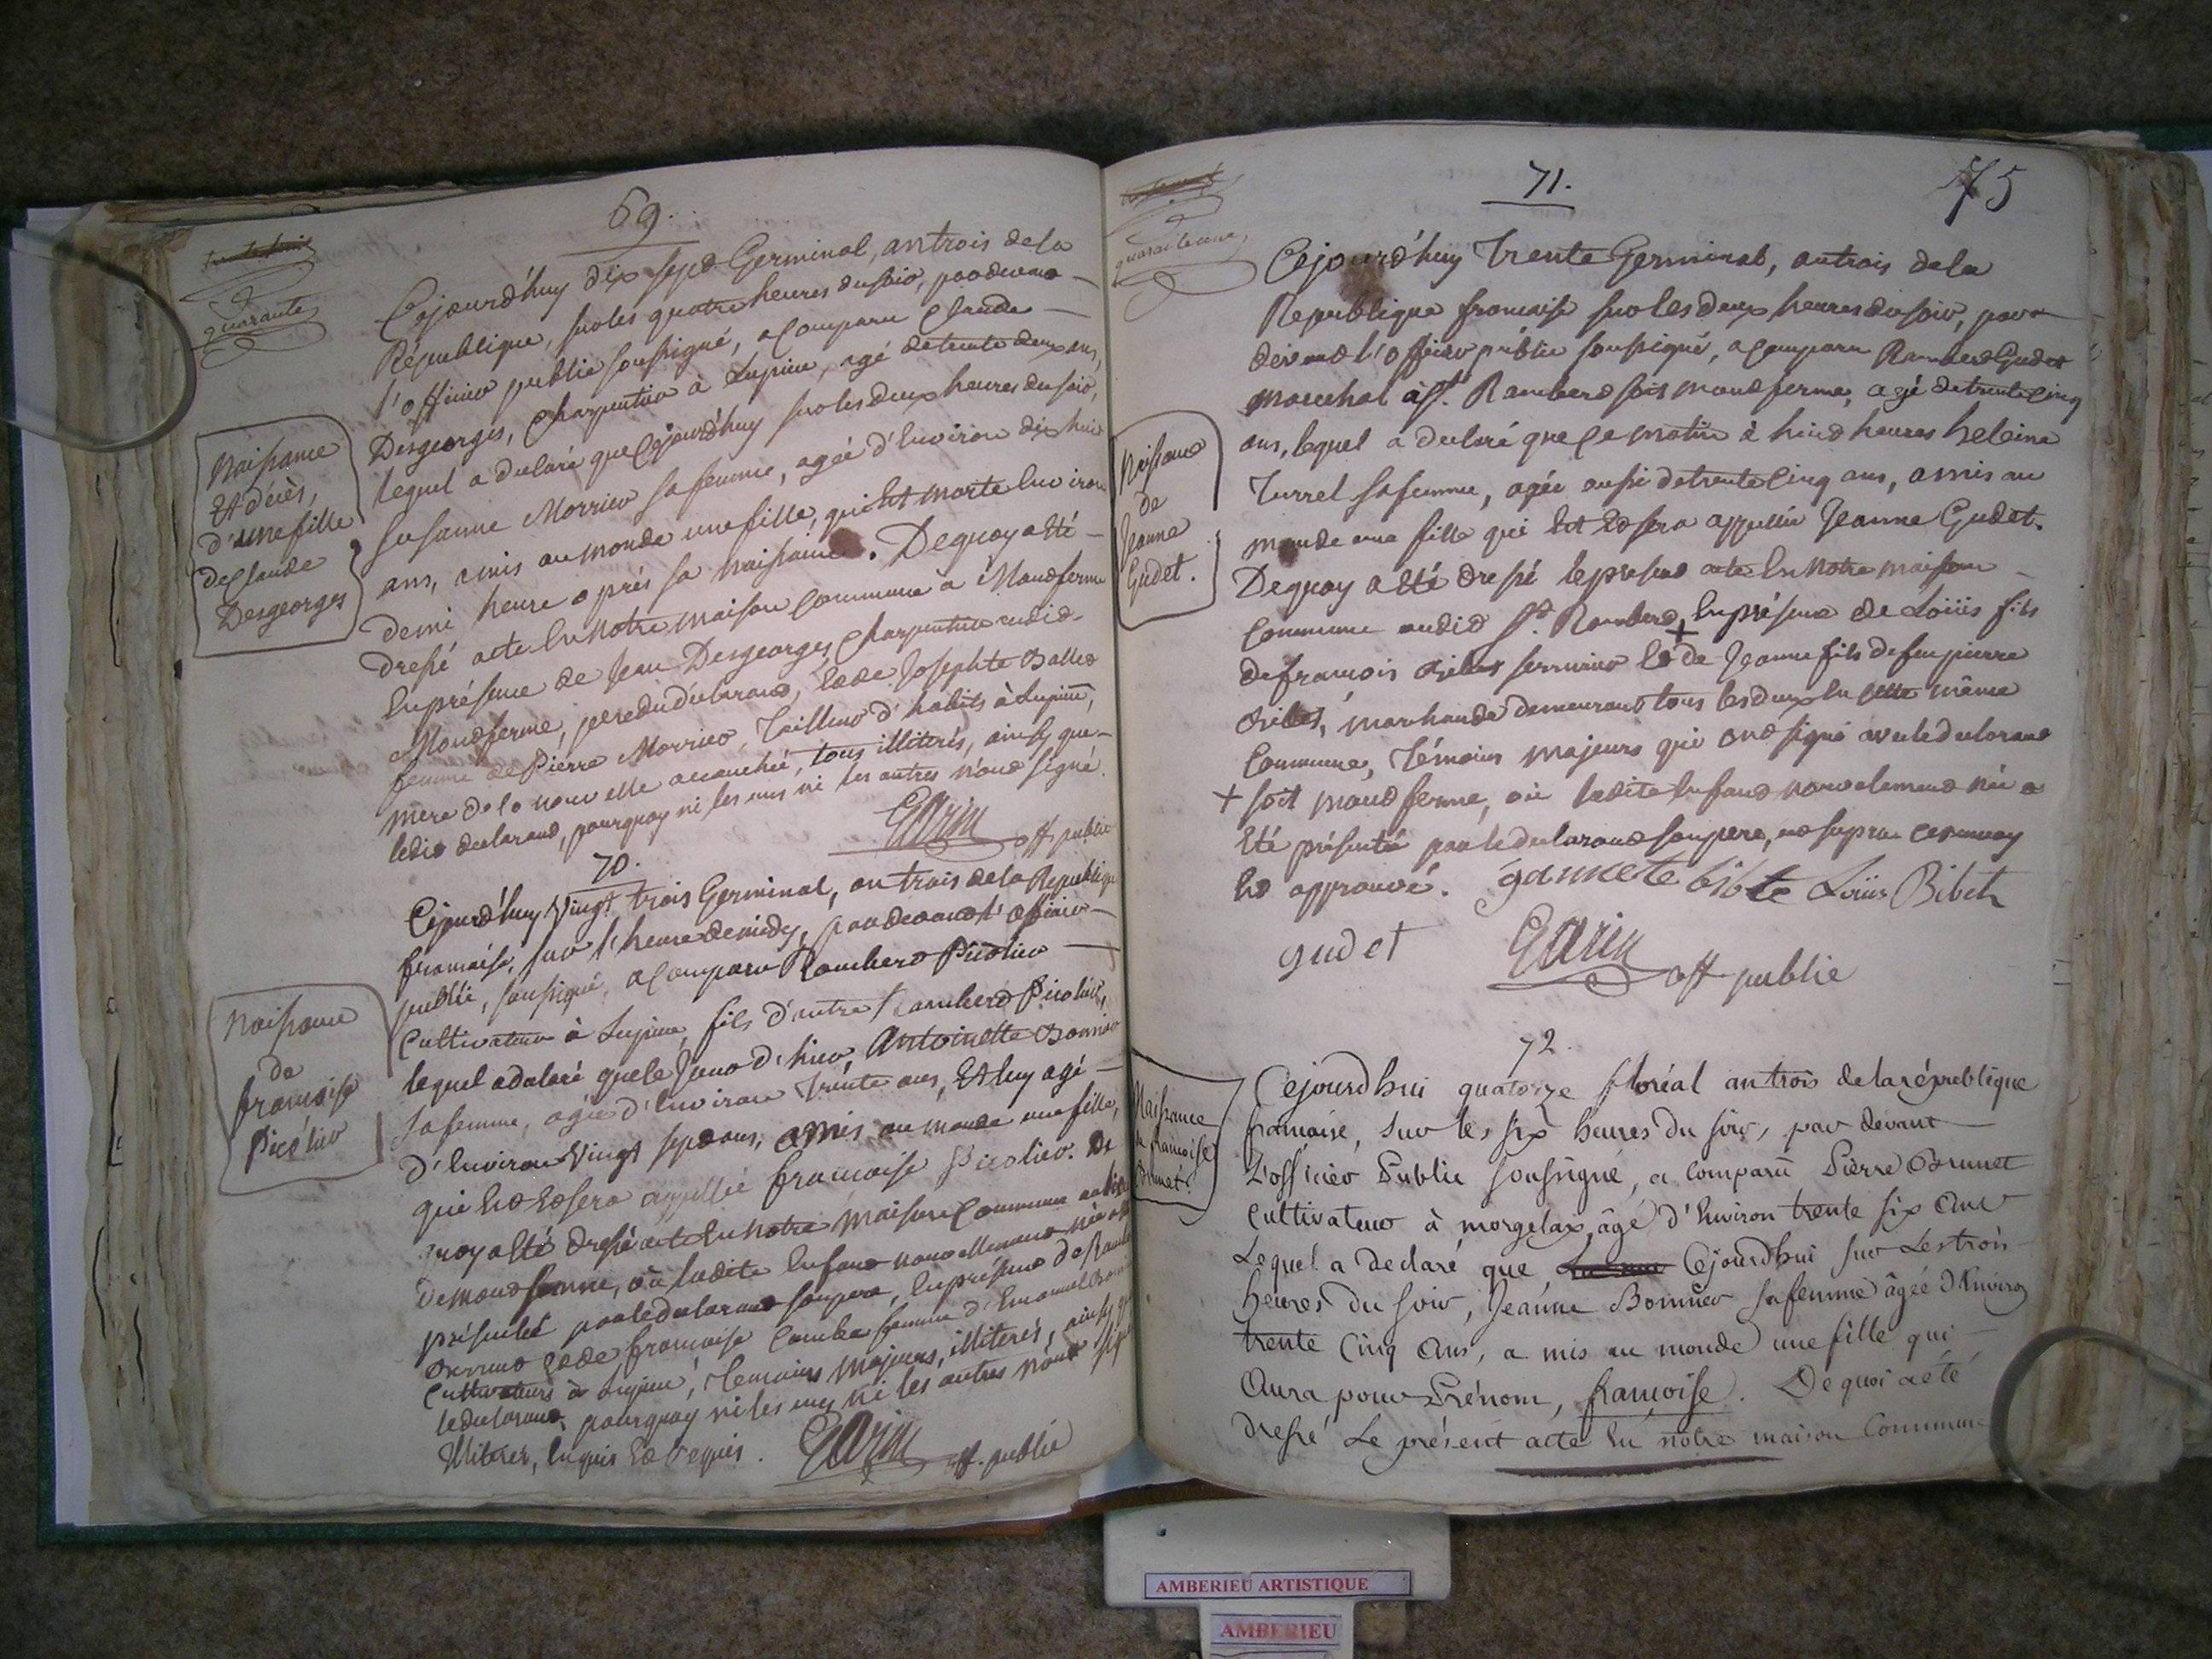 69.
quarante
Naissance
Et décès,
d'une fille
de Claude
Desgeorges
Cejourd'huy dix sept Germinal, an trois de la
République, sur les quatre heures du soir, pardevant
l'officier public soussigné, a comparu Claude
Desgeorges, charpentier à Lupieu, agé de trente deux ans,
lequel a declaré que Cejourd'huy sur les deux heures du soir,
Susanne Morrier sa femme, agée d'Environ dix huit
ans, a mis au monde une fille, qui Est morte Environ
demi heure après sa naissance. Dequoy a Eté
dressé acte En notre maison Commune à Montferme
En présence de Jean Desgeorges charpentier audit
Montferme, pere du déclarant, Et de Josephte
femme de Pierre Morrier, Tailleur d'habits à Lupieu,
mere de la nouvelle accouchée, tous illiterés, ainsy que
ledit declarant, pourquoy ni les uns ni les autres n'ont signé.
Garin off public
70.
Naissance
de
françoise
Picolier
Cejourd'huy Vingt trois Germinal, an trois de la Republique
francaise, sur l'heure de midy, pardevant l'officier
public, soussigné, a comparu Rambert Picolier
Cultivateur à Lupieu, fils d'autre Rambert Picolier,
lequel a declaré que le Jour d'hier, Antoinette Bonnier
sa femme, agée d'Environ Trente ans, Et luy agé
d'Environ Vingt sept ans, a mis au monde une fille,
qui Est Et sera appellée francoise Picolier. De
quoy a Eté dressé acte En notre maison Commune audit
de montferme, où ladite Enfant nouvellement née a été
présentée par le declarant son pere, En présence de
Et de francoise femme d'Emanuel
Cultivateurs à Lupieu, Temoins majeurs, illiterés, ainsy que
le declarant, pourquoy ni les uns ni les autres n'ont
Illiterés, Enquis Et Requis. Garin off. public
71.
75
quarante une
Naissance
de
Jeanne
Gudet.
Cejourd'huy Trente Germinal, an trois de la
Republique francaise sur les deux heures du soir, par
devant l'officier public soussigné, a comparu Rambert Gudet
marechal à St. Rambert soit montferme, agé de trente cinq
ans, lequel a declaré que Ce matin à huit heures heleine
Turrel sa femme, agée aussi de trente Cinq ans, a mis au
monde une fille qui Est Et sera appellée Jeanne Gudet.
Dequoy a Eté dressé le present acte En notre maison
Commune audit St. Rambert, + En présence de Loüis fils
de francois Bibet serrurier Et de Jeanne fils de feu pierre
Bibet, marchande demeurant tous les deux En cette même
Commune, Témoins majeurs qui ont signé avec le declarant
+ soit montferme, où ladite Enfant nouvelement née a
Eté présentée par le declarant son pere,
Et approuvé. gannete bibte Loüis Bibet
gudet Garin off public
72.
Naissance
de francoise
Brunet.
Cejourdhui quatorze floréal an trois de la république
francaise, sur les six heures du soir, par devant
L'officier Public soussigné, a comparu Pierre Brunet
Cultivateur à morgelax, âgé d'Environ trente six ans
Lequel a declaré que Cejourdhui sur Les trois
heures du soir, Jeanne Bonnier sa femme âgée d'Environ
trente Cinq Ans, a mis au monde une fille qui
Aura pour Prénom, françoise. De quoi a été
dressé Le présent acte En notre maison Commune
AMBERIEU ARTISTIQUE
AMBERIEU